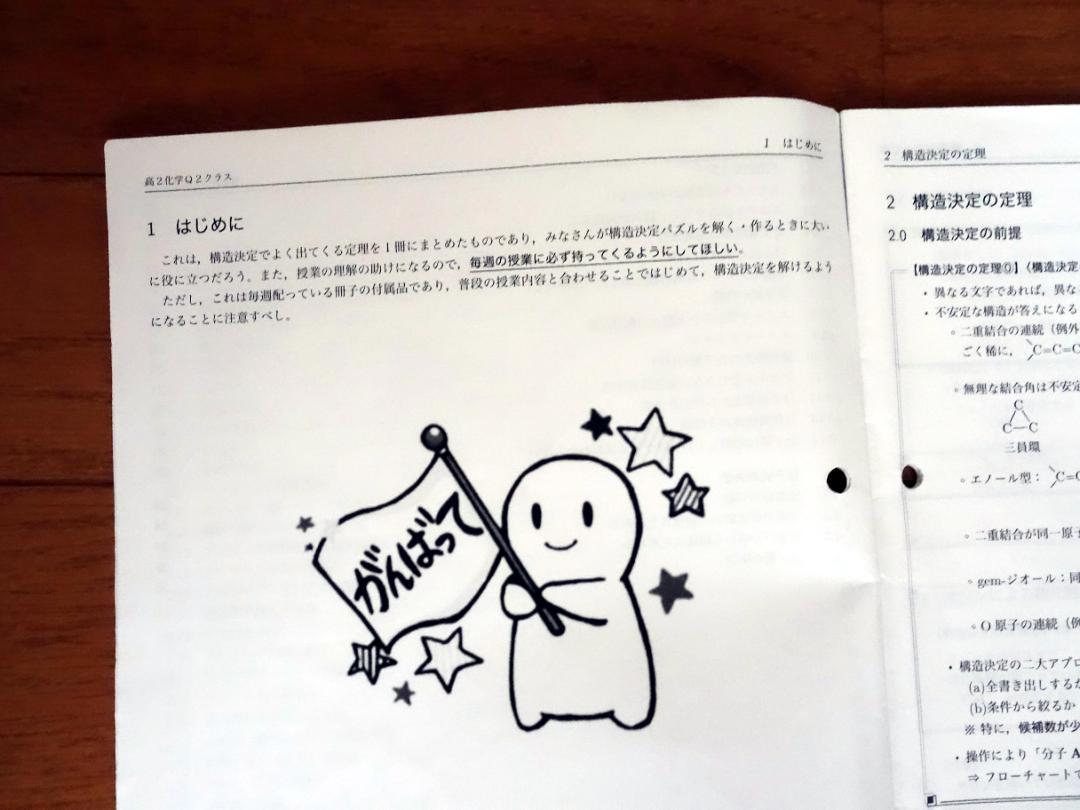 高2化学Q2クラス
1 はじめに
1 はじめに
これは，構造決定でよく出てくる定理を1冊にまとめたものであり，みなさんが構造決定パズルを解く・作るときに大い
に役に立つだろう。また，授業の理解の助けになるので，毎週の授業に必ず持ってくるようにしてほしい。
ただし，これは毎週配っている冊子の付属品であり，普段の授業内容と合わせることではじめて，構造決定を解けるよう
になることに注意すべし。
がんばって
2 構造決定の定理
2 構造決定の定理
2.0 構造決定の前提
【構造決定の定理⓪】〈構造決定
・異なる文字であれば，異な
・不安定な構造が答えになる
◦二重結合の連続（例外
ごく稀に， C=C=C
◦無理な結合角は不安定
C
C－C
三員環
◦エノール型： C=C
◦二重結合が同一原子
◦gem-ジオール：同
◦O原子の連続（例
・構造決定の二大アプロ
(a)全書き出しするか
(b)条件から絞るか
※ 特に，候補数が少
・操作により「分子A
⇒ フローチャートで